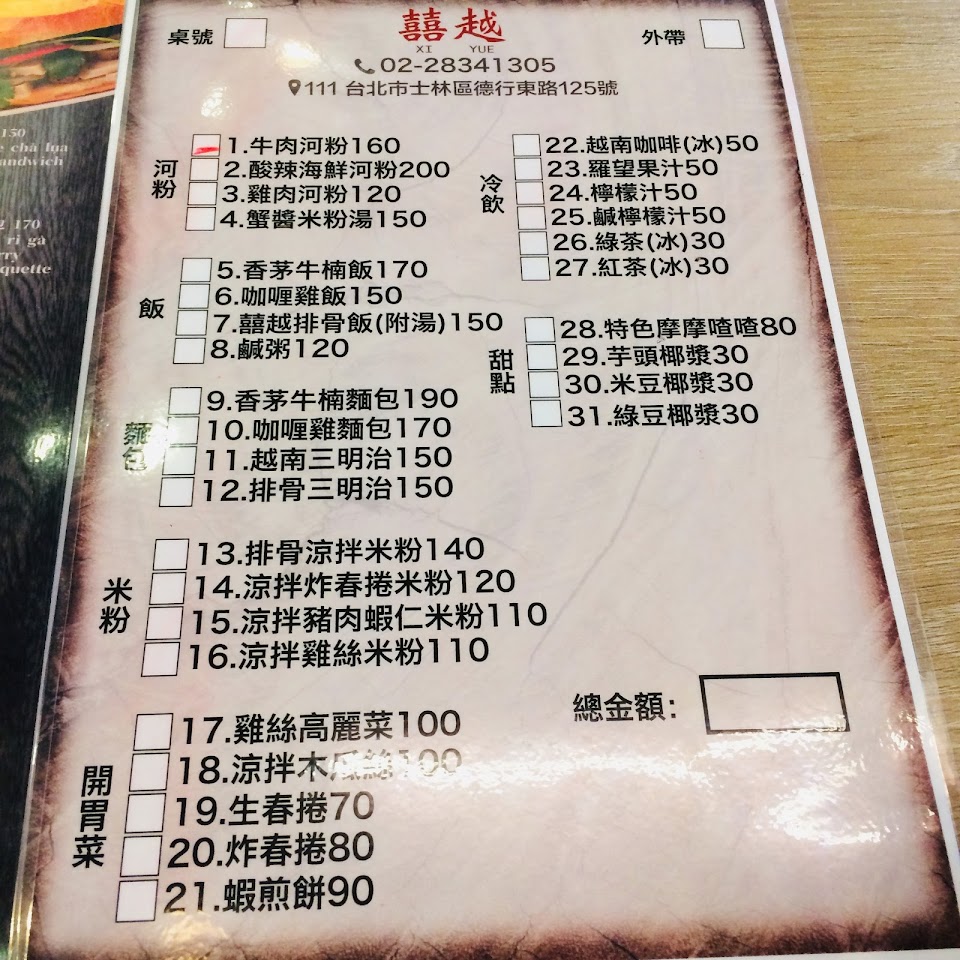 150
chả lụa
andwich
170
ri gà
rry
quette
桌號
囍越
XI YUE
外帶
02-28341305
111 台北市士林區德行東路125號
河粉
1.牛肉河粉160
2.酸辣海鮮河粉200
3.雞肉河粉120
4.蟹醬米粉湯150
飯
5.香茅牛楠飯170
6.咖喱雞飯150
7.囍越排骨飯(附湯)150
8.鹹粥120
麵包
9.香茅牛楠麵包190
10.咖喱雞麵包170
11.越南三明治150
12.排骨三明治150
米粉
13.排骨涼拌米粉140
14.涼拌炸春捲米粉120
15.涼拌豬肉蝦仁米粉110
16.涼拌雞絲米粉110
開胃菜
17.雞絲高麗菜100
18.涼拌木瓜絲100
19.生春捲70
20.炸春捲80
21.蝦煎餅90
冷飲
22.越南咖啡(冰)50
23.羅望果汁50
24.檸檬汁50
25.鹹檸檬汁50
26.綠茶(冰)30
27.紅茶(冰)30
甜點
28.特色摩摩喳喳80
29.芋頭椰漿30
30.米豆椰漿30
31.綠豆椰漿30
總金額: